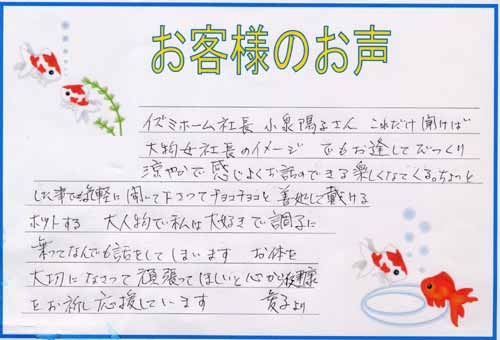 お客様のお声
イズミホーム社長 小泉陽子さん これだけ聞けば
大物女社長のイメージ でもお逢してびっくり
涼やかで感じよくお話のできる楽しくなてくる。ちょっと
した事でも気軽に聞いて下さってチョコチョコと善処して戴ける
ホットする 大人物で私は大好きで調子に
乗ってなんでも話をしてしまいます お体を
大切になさって頑張ってほしいと心から健康
をお祈し応援しています 愛子より